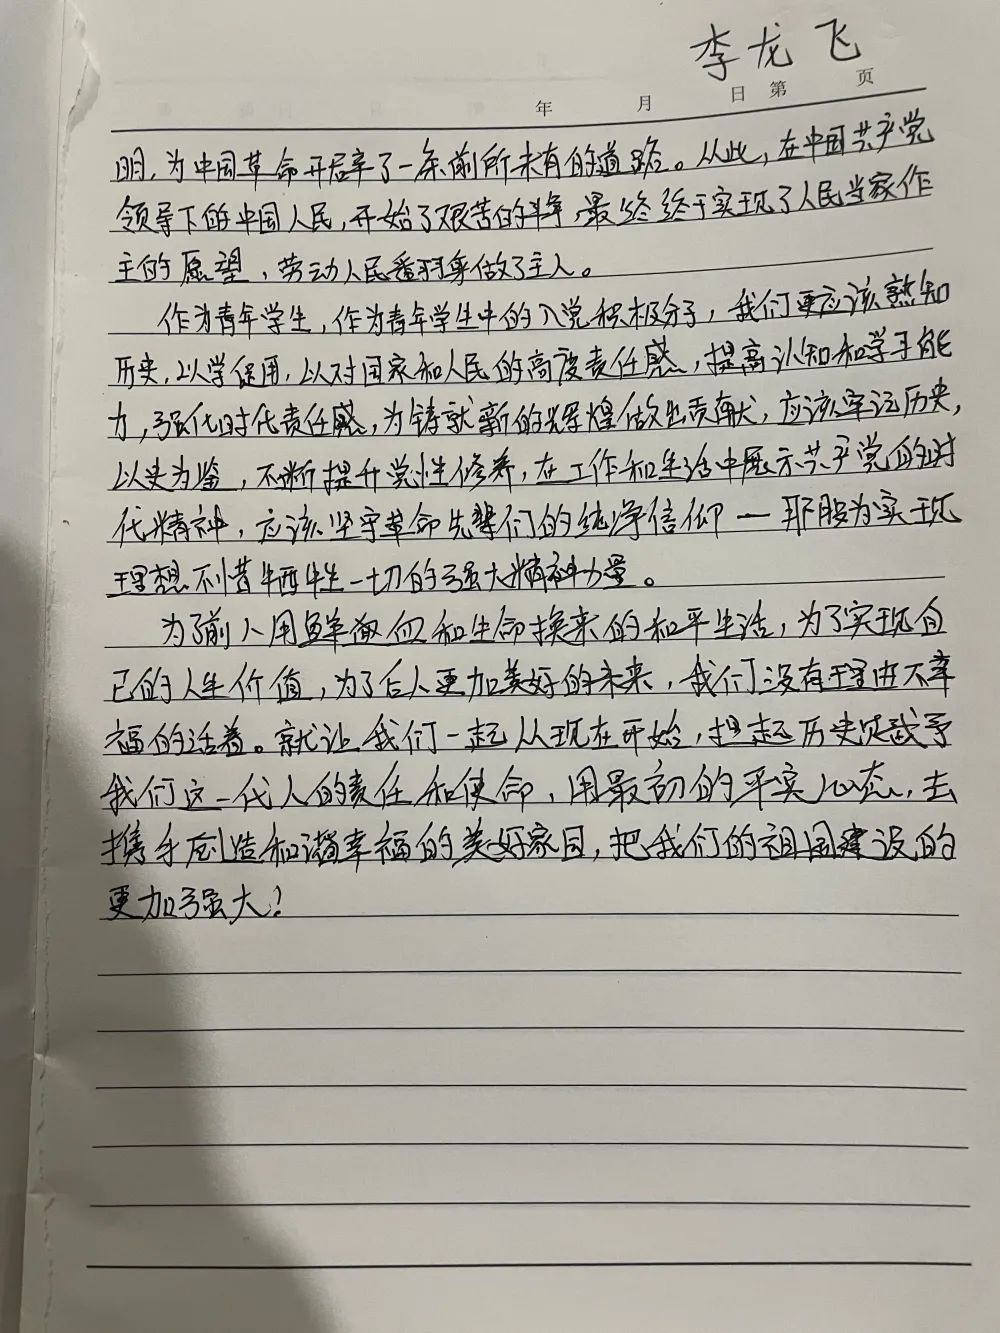 李龙飞
年 月 日 第 页
明,为中国革命开启辟了一条前所未有的道路。从此,在中国共产党
领导下的中国人民,开始了艰苦的斗争,最终终于实现了人民当家作
主的愿望,劳动人民番羽身做了主人。
作为青年学生,作为青年学生中的入党积极分子,我们更应该熟知
历史,以学促用,以对国家和人民的高度责任感,提高认知和学习能
力,强化时代责任感,为铸就新的辉煌做出贡献,应该牢记历史,
以史为鉴,不断提升党性修养,在工作和生活中展示共产党的时
代精神,应该坚守革命先辈们的纯净信仰一耶股为实现
理想不惜牺牲一切的强大精神力量。
为了前人用鲜血和生命换来的和平生活,为了实现自
己的人生价值,为了后人更加美好的未来,我们没有理由不幸
福的活着。就让我们一起从现在开始,担起历史赋予
我们这一代人的责任和使命,用最初的平实心态,去
携手创造和谐幸福的美好家园,把我们的祖国建设的
更加强大!